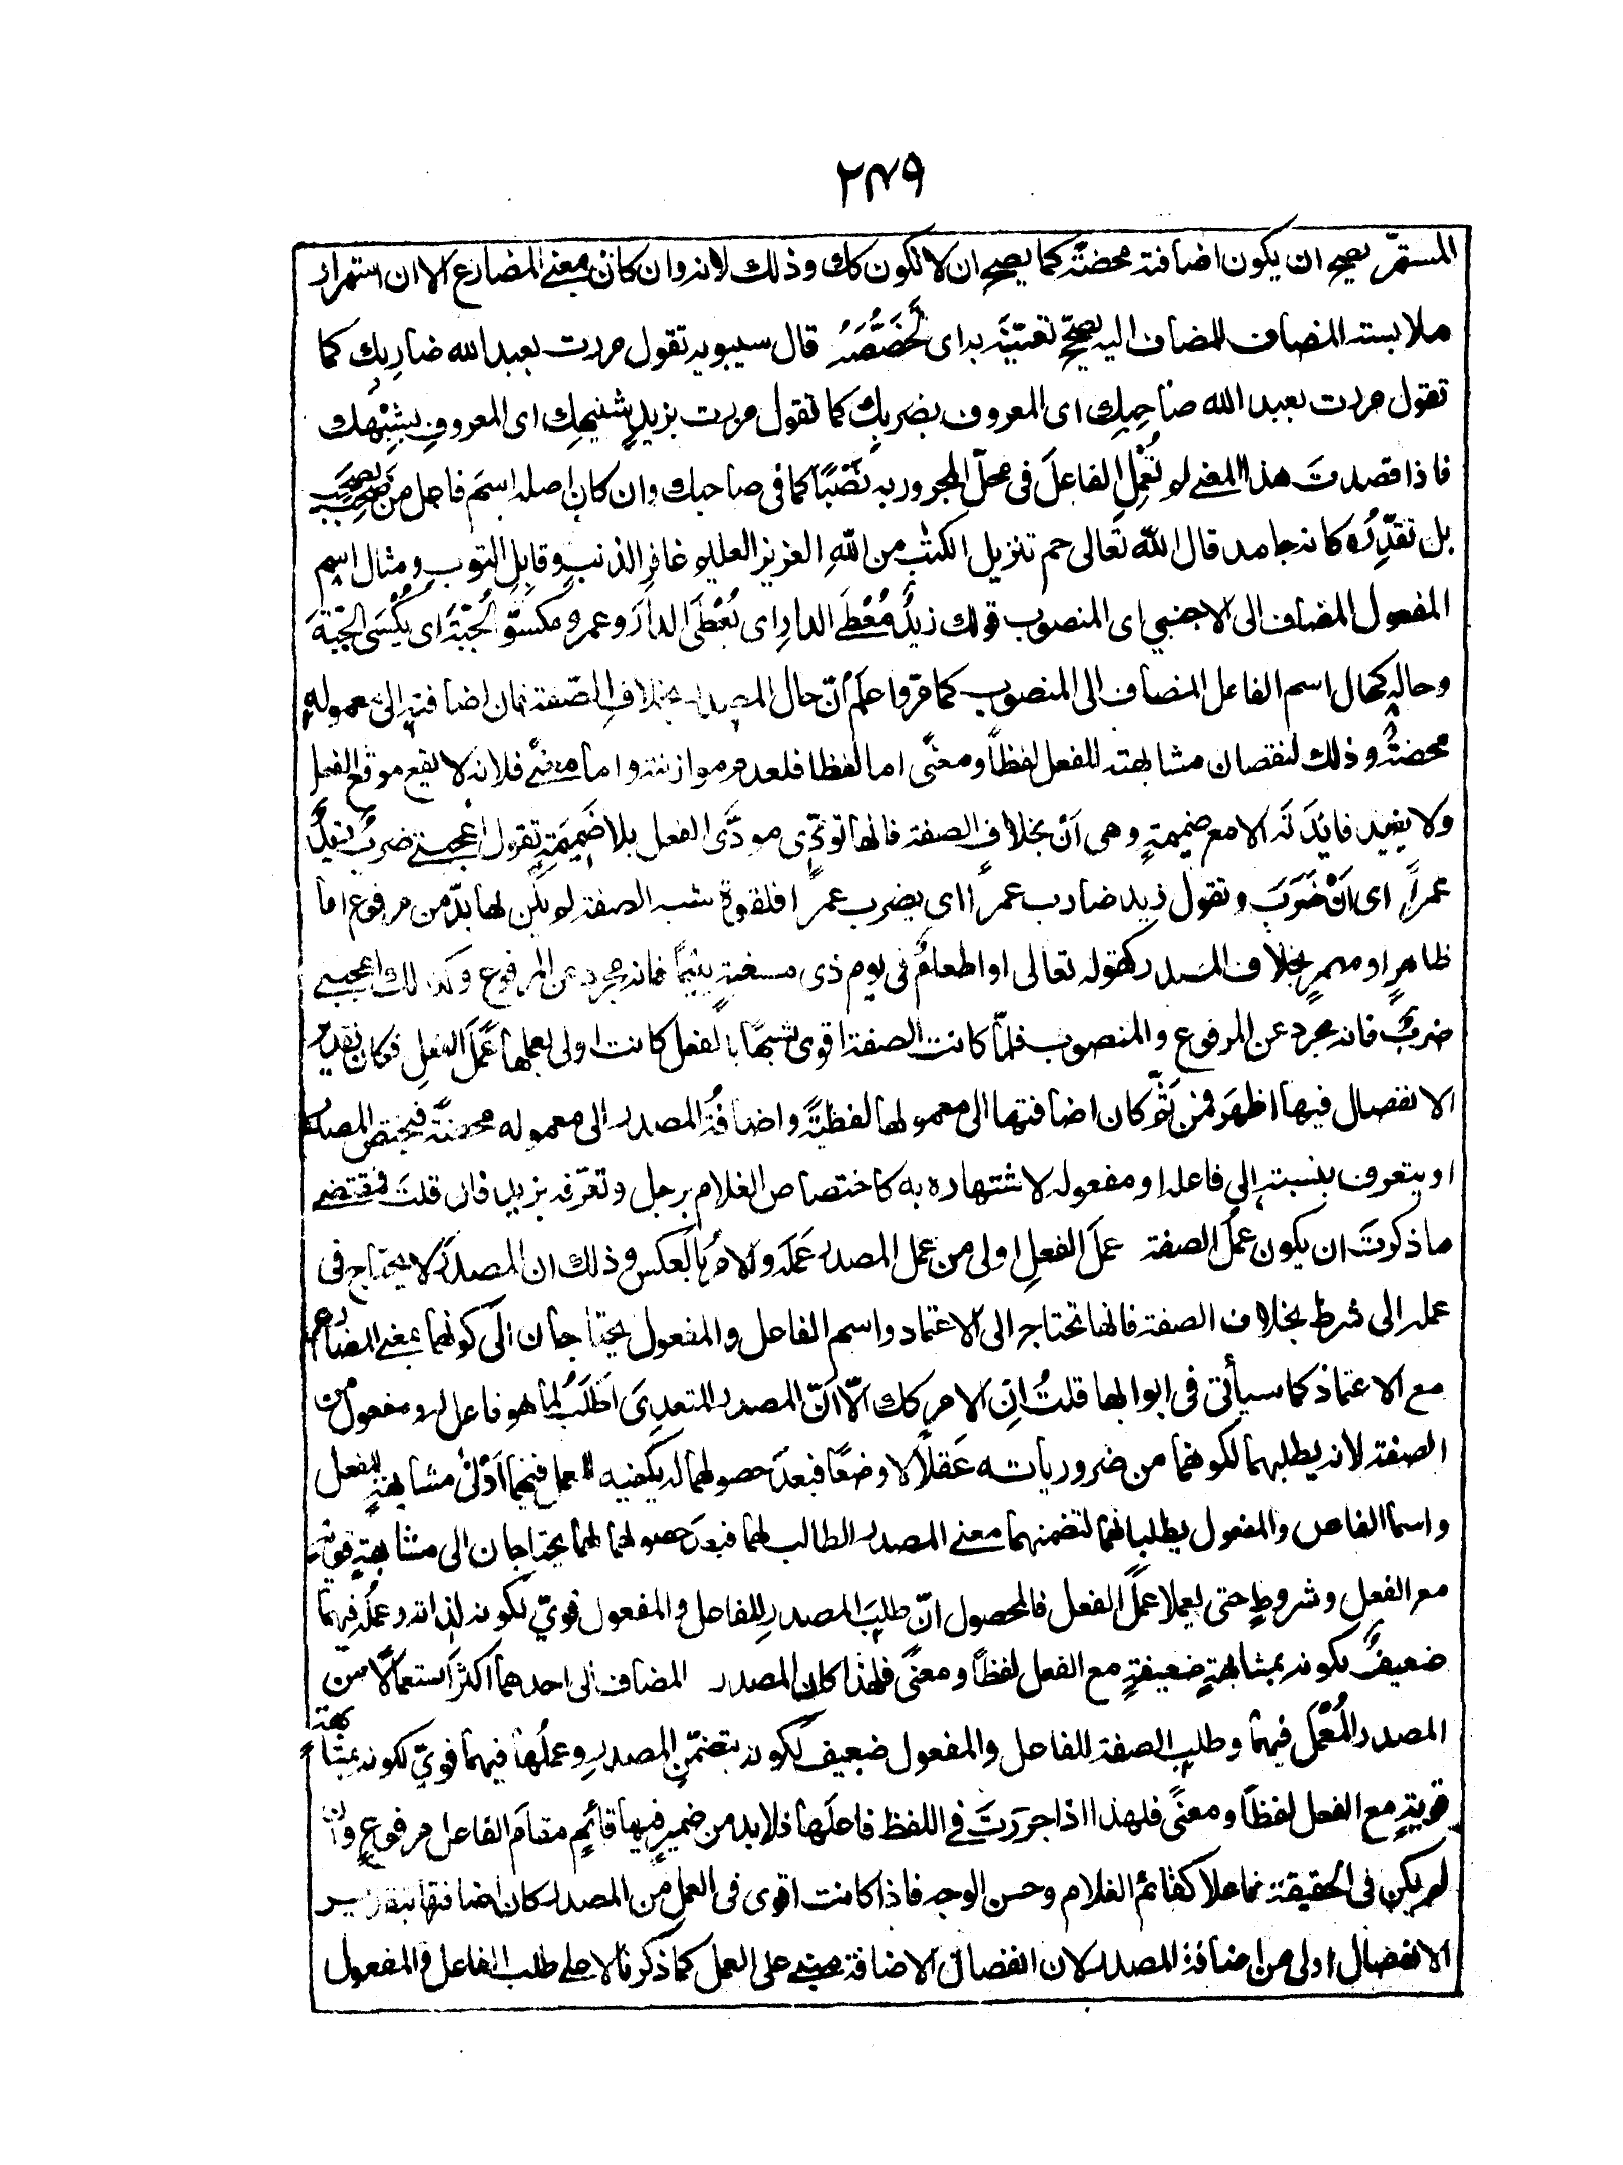 ٢٧٩
المستمرّ يصح ان يكون اضافته محضةً كما يصح ان لا تكون كك وذلك لانه وان كان بمعنى المضارع الا ان استمرار
ملابسته المضاف للمضاف اليه يصحّح تعيّنَه به اى تخصّصَه قال سيبويه تقول مررت بعبد الله ضاربِك كما
تقول مررت بعبد الله صاحبِك اى المعروف بضربِك كما تقول مررت بزيدٍ شبيهِك اى المعروفِ بشِبْهك
فاذا قصدتَ هذا المعنى لم تُعْمِلِ الفاعلَ فى محلّ المجرور به نَصْبًا كما فى صاحبك وان كان اصله اسمَ فاعل من صحِبَ يصحَب
بل تقدّرُه كانه جامد قال اللّٰه تعالى حم تنزيل الكتٰب من اللّٰهِ العزيز العليم غافرِ الذنبِ وقابلِ التوبِ ومثال اسم
المفعول المضاف الى الاجنبي اى المنصوب قولك زيدٌ مُعْطَى الدارِ اى يُعْطَى الدارَ وعمرٌو مكسوُّ الجُبّةِ اى يُكْسَى الجبّةَ
وحاله كحال اسم الفاعل المضاف الى المنصوب كما مرّ واعلم أنّ حال المصدر بخلافِ الصّفة فان اضافتهِ الى معمولهِ
محضةٌ وذلك لنقصان مشابهته للفعل لفظاً ومعنًى اما لفظا فلعدم موازنته واما معنًى فلانه لا يقع موقع الفعل
ولا يفيد فائدَتَه الا مع ضميمةٍ وهى اَنْ بخلاف الصفة فانها تؤدّى مودَّى الفعل بلا ضَمِيمَةٍ تقول اعجبنى ضربُ زيدٍ
عمراً اى اَنْ ضَرَبَ وتقول زيد ضارب عمراً اى يضرب عمراً فلقوة شبه الصفة لم يكن لها بدّ من مرفوع اما
ظاهرٍ او مضمرٍ بخلاف المصدر كقوله تعالى او اطعامٌ فى يوم ذى مسغبةٍ يتيمًا فانه مجرد عن المرفوع وكذلك اعجبنى
ضربٌ فانه مجرد عن المرفوع والمنصوب فلمّا كانت الصفة اقوى شبهًا بالفعل كانت اولى بعملها عَمَلَ الفعلِ فكان تقدير
الانفصال فيها اظهَرَ فمن ثَمَّ كان اضافتها الى معمولها لفظيّةً واضافةُ المصدر الى معموله محضةً فيختص المصدر
او يتعرف بنسبتهِ الى فاعله او مفعوله لاشتهاره به كاختصاص الغلام برجل وتعرّفه بزيد فان قلتَ فمقتضى
ما ذكرتَ ان يكون عملُ الصفة عملَ الفعلِ اولى من عمل المصدر عَمَلَه والامرُ بالعكس وذلك ان المصدرَ لا يحتاج فى
عمله الى شرط بخلاف الصفة فانها تحتاج الى الاعتماد واسم الفاعل والمفعول يحتاجان الى كونهما بمعنى المضارع
مع الاعتماد كما سيأتى فى ابوابها قلتُ انّ الامر كك الّا انّ المصدر المتعدىَ اَطْلَبُ لما هو فاعل له ومفعول من
الصفة لانه يطلبهما لكونهما من ضرورياته عَقلًا لا وضعًا فبعدَ حصولهما له يكفيه للعمل فيهما اَدْنٰى مشابهةٍ للفعل
واسما الفاعل والمفعول يطلبانهما لتضمنهما معنى المصدر الطالب لهما فبعدَ حصولهما لهما يحتاجان الى مشابهةٍ قويّةٍ
مع الفعلِ وشروطٍ حتى يعملا عملَ الفعل فالمحصول انّ طلبَ المصدرِ للفاعل والمفعول قويّ لكونه لذاته وعملُه فيهما
ضعيفٌ لكونه بمشابهةٍ ضعيفةٍ مع الفعل لفظاً ومعنًى فلهذا كان المصدر المضاف الى احدهما اكثرَ استعمالًا من
المصدر المُعْمَل فيهما وطلبِ الصفة للفاعل والمفعول ضعيف لكونه بتضمّنِ المصدرِ وعملُها فيهما قويّ لكونه بمشابهة
قويةٍ مع الفعل لفظاً ومعنًى فلهذا اذا جررتَ فى اللفظ فاعلَها فلا بد من ضميرٍ فيها قائمٍ مقامَ الفاعل مرفوعٍ وان
لم يكن فى الحقيقة فاعلا كقائم الغلام وحسن الوجه فاذا كانت اقوى فى العمل من المصدر كان اضافتها بتقدير
الانفصال اولى من اضافة المصدر لان انفصال الاضافة مبنى على العمل كما ذكرنا لا على طلب الفاعل والمفعول